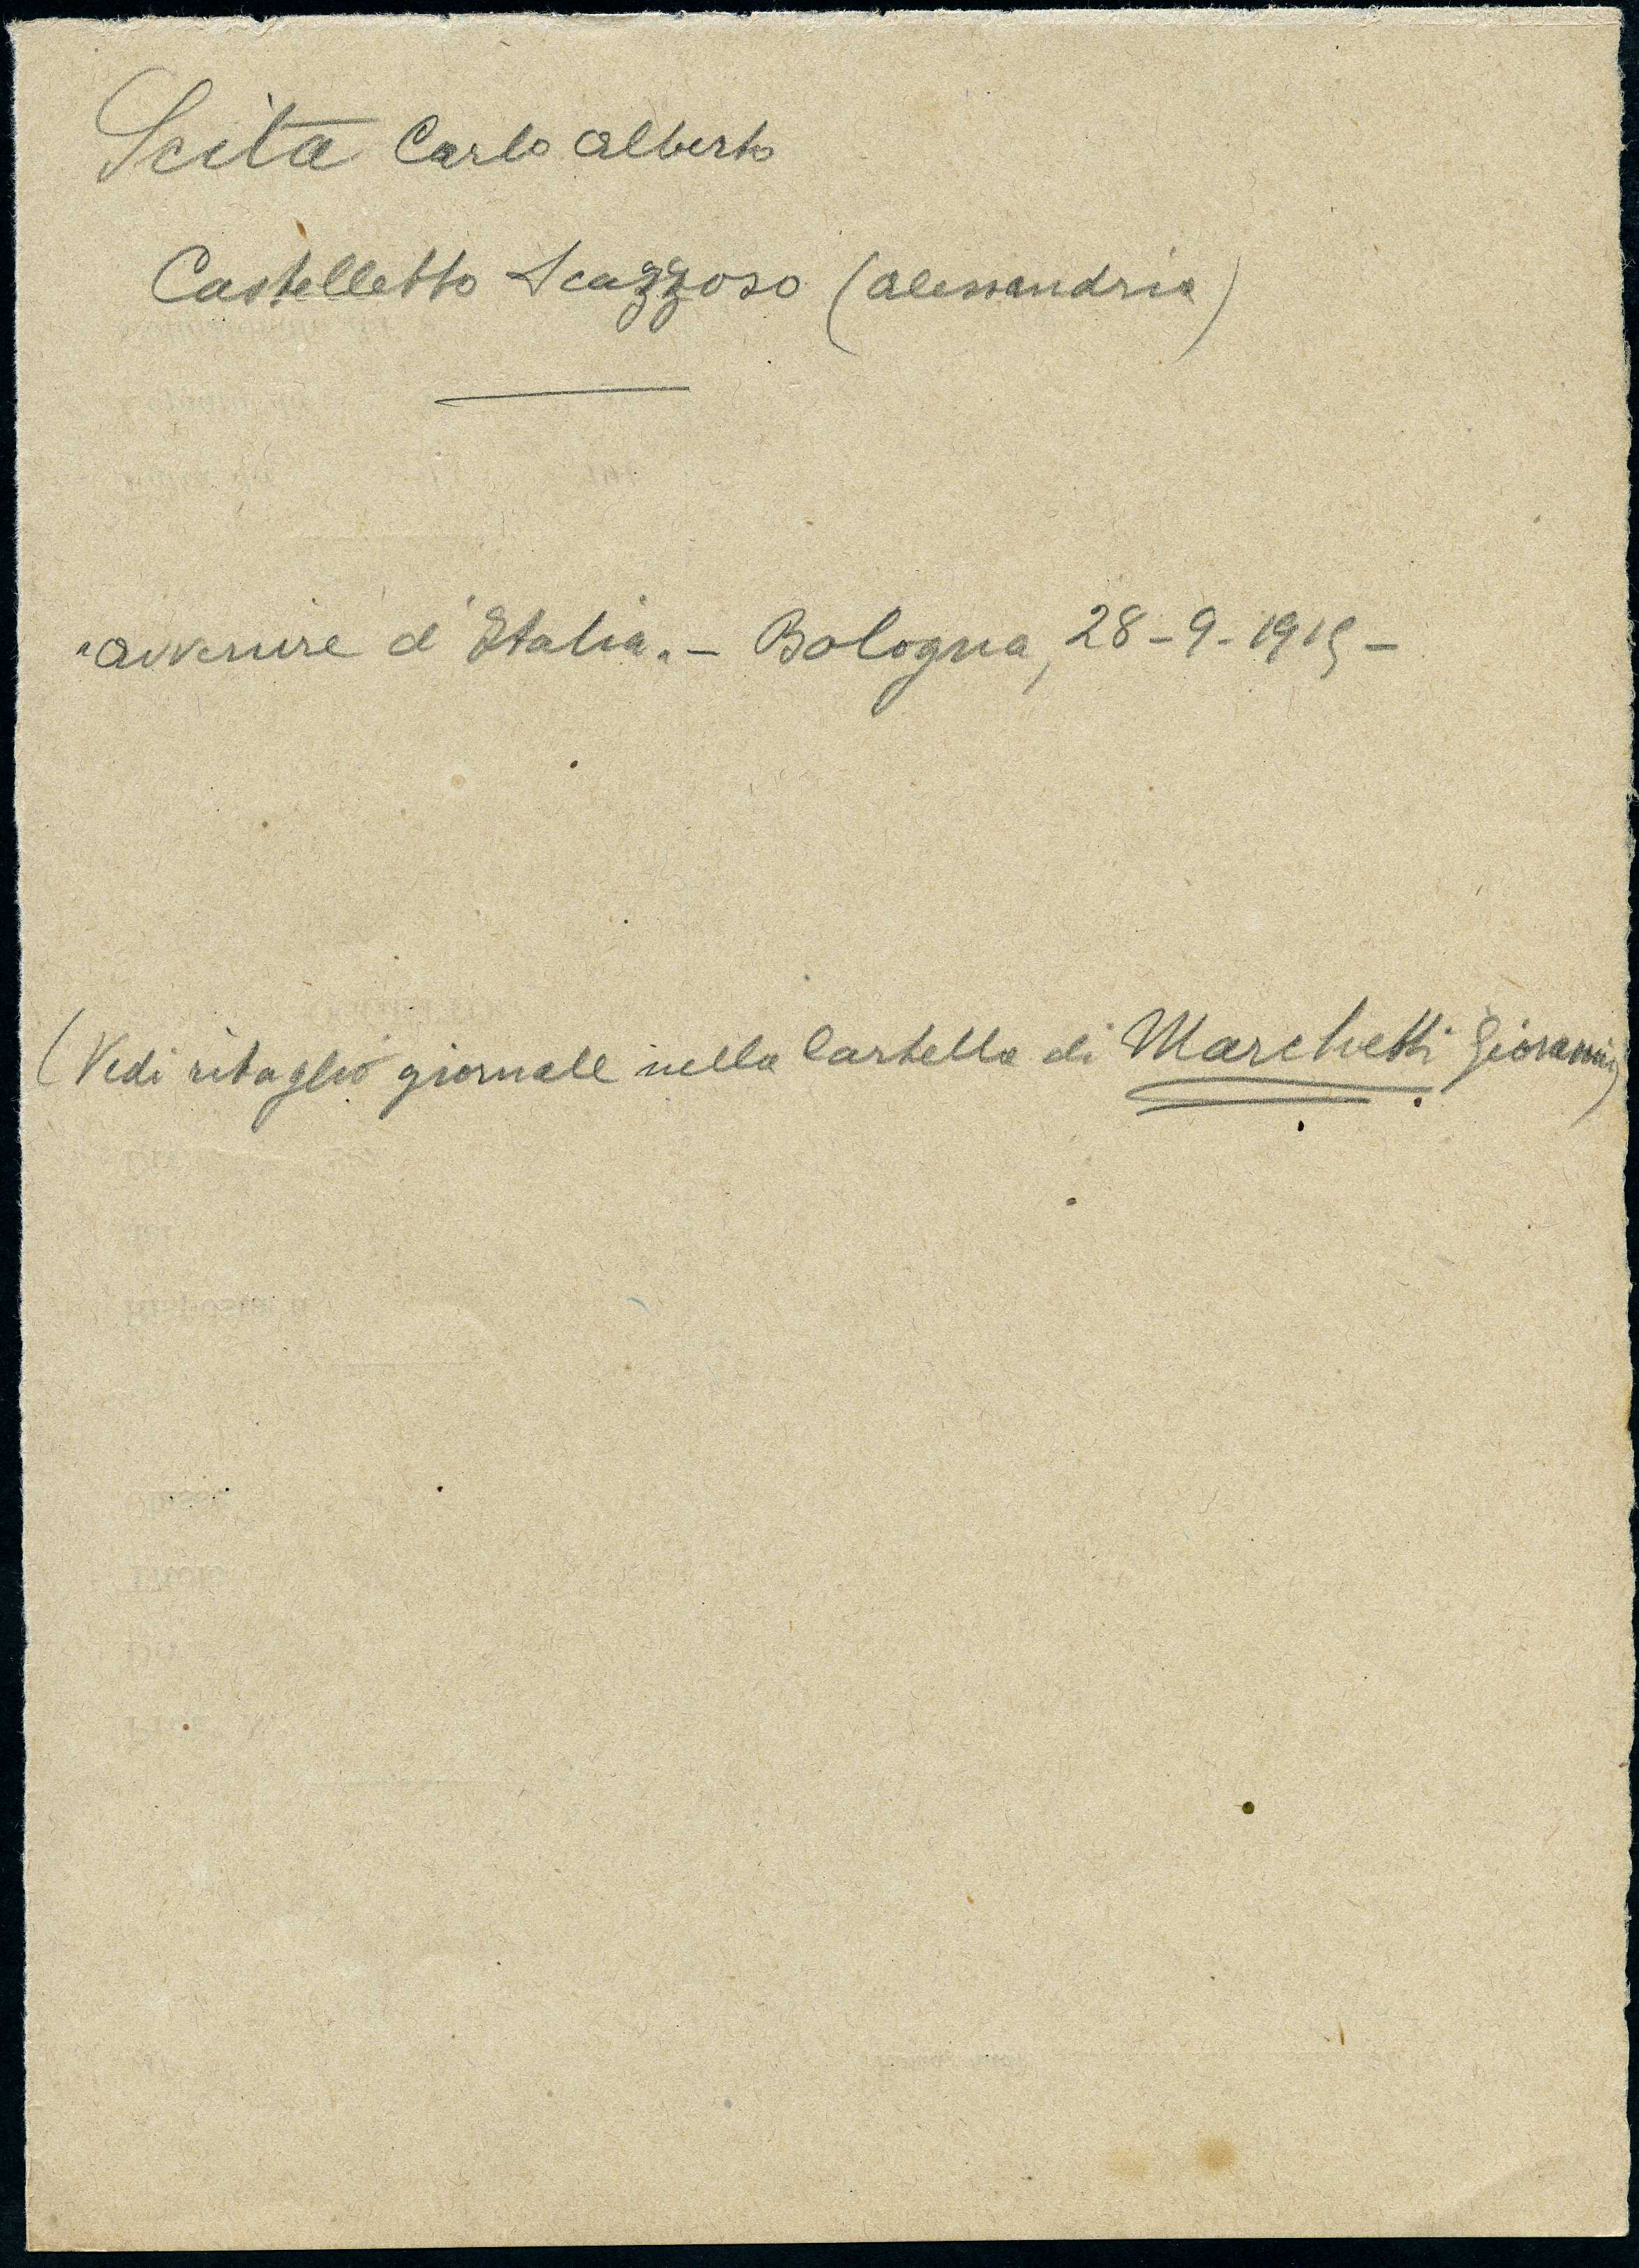 Scita Carlo Alberto
Castelletto Scazzoso (Alessandria)
"Avvenire d'Italia" - Bologna, 28-9-1915 -
(Vedi ritaglio giornale nella Cartella di Marchetti Giovanni)